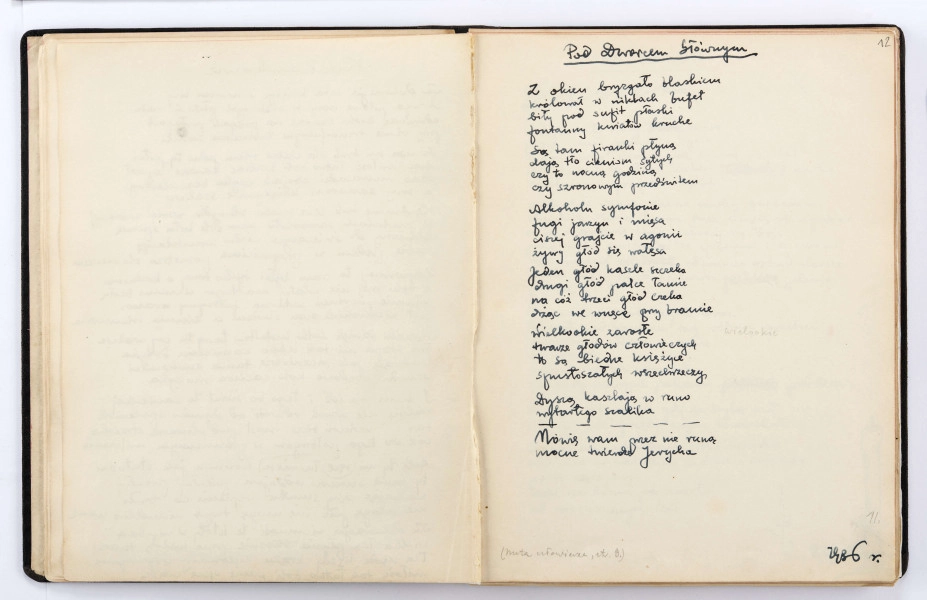 12
Pod Dworcem Głównym
Z okien bryzgało blaskiem
królował w niklach bufet
biły pod sufit płaski
fontanny kwiatów kruche
Są tam firanki płyną
dają tło cieniom sytych
czy to nocną godziną
czy szronowym przedświtem
Alkoholu symfonie
fugi jarzyn i mięsa
ciszej grajcie w agonii
żywy głód się wałęsa
Jeden głód kaszle szczeka
drugi głód palce łamie
na cóż trzeci głód czeka
drżąc we wnęce przy bramie
Wielkookie zarosłe
twarze głodów człowieczych
to są biedne księżyce
spustoszałych wszechrzeczy
Dyszą kaszlają w runo
wytartego szalika
Mówię wam przez nie runą
mocne twierdze Jerycha
wielookie
11.
1936 r.